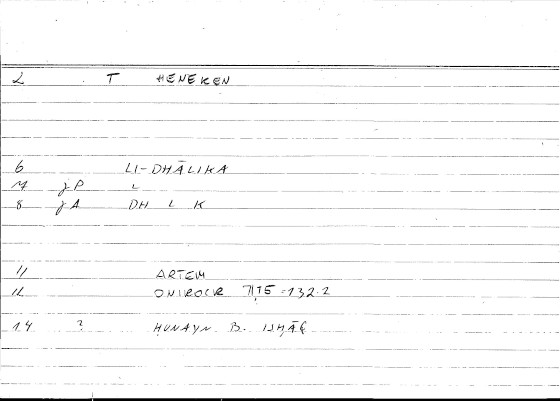 2 . T HENEKEN
6 LI-DHĀLIKA
7 JP L
8 JA DH L K
11 ARTEM
12 ONIROCR 7,15 = 132.2
14 ? ḤUNAYN B. ISḤĀḲ